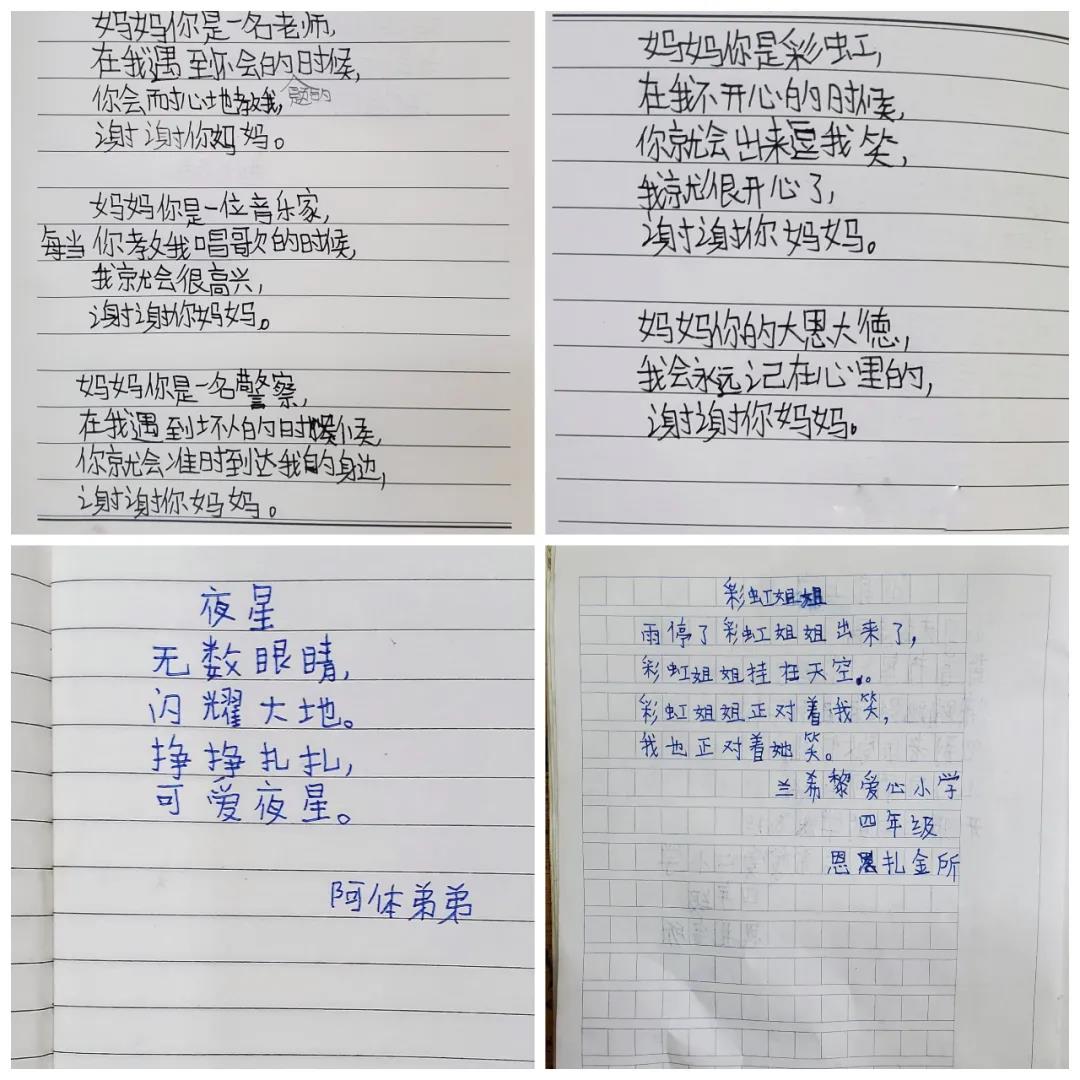 妈妈你是一名老师,
在我遇到不会的时候,
题的
你会耐心地教我,
谢谢你妈妈。
妈妈你是一位音乐家,
每当你教我唱歌的时候,
我就会很高兴,
谢谢你妈妈。
妈妈你是一名警察,
在我遇到坏人的时候,
你就会准时到达我的身边,
谢谢你妈妈。
妈妈你是彩虹,
在我不开心的时候,
你就会出来逗我笑,
我就很开心了,
谢谢你妈妈。
妈妈你的大恩大德,
我会永远记在心里的,
谢谢你妈妈。
夜星
无数眼睛,
闪耀大地。
挣挣扎扎,
可爱夜星。
阿体弟弟
彩虹姐姐
雨停了彩虹姐姐出来了,
彩虹姐姐挂在天空。
彩虹姐姐正对着我笑,
我也正对着她笑。
兰希黎爱心小学
四年级
恩扎金所